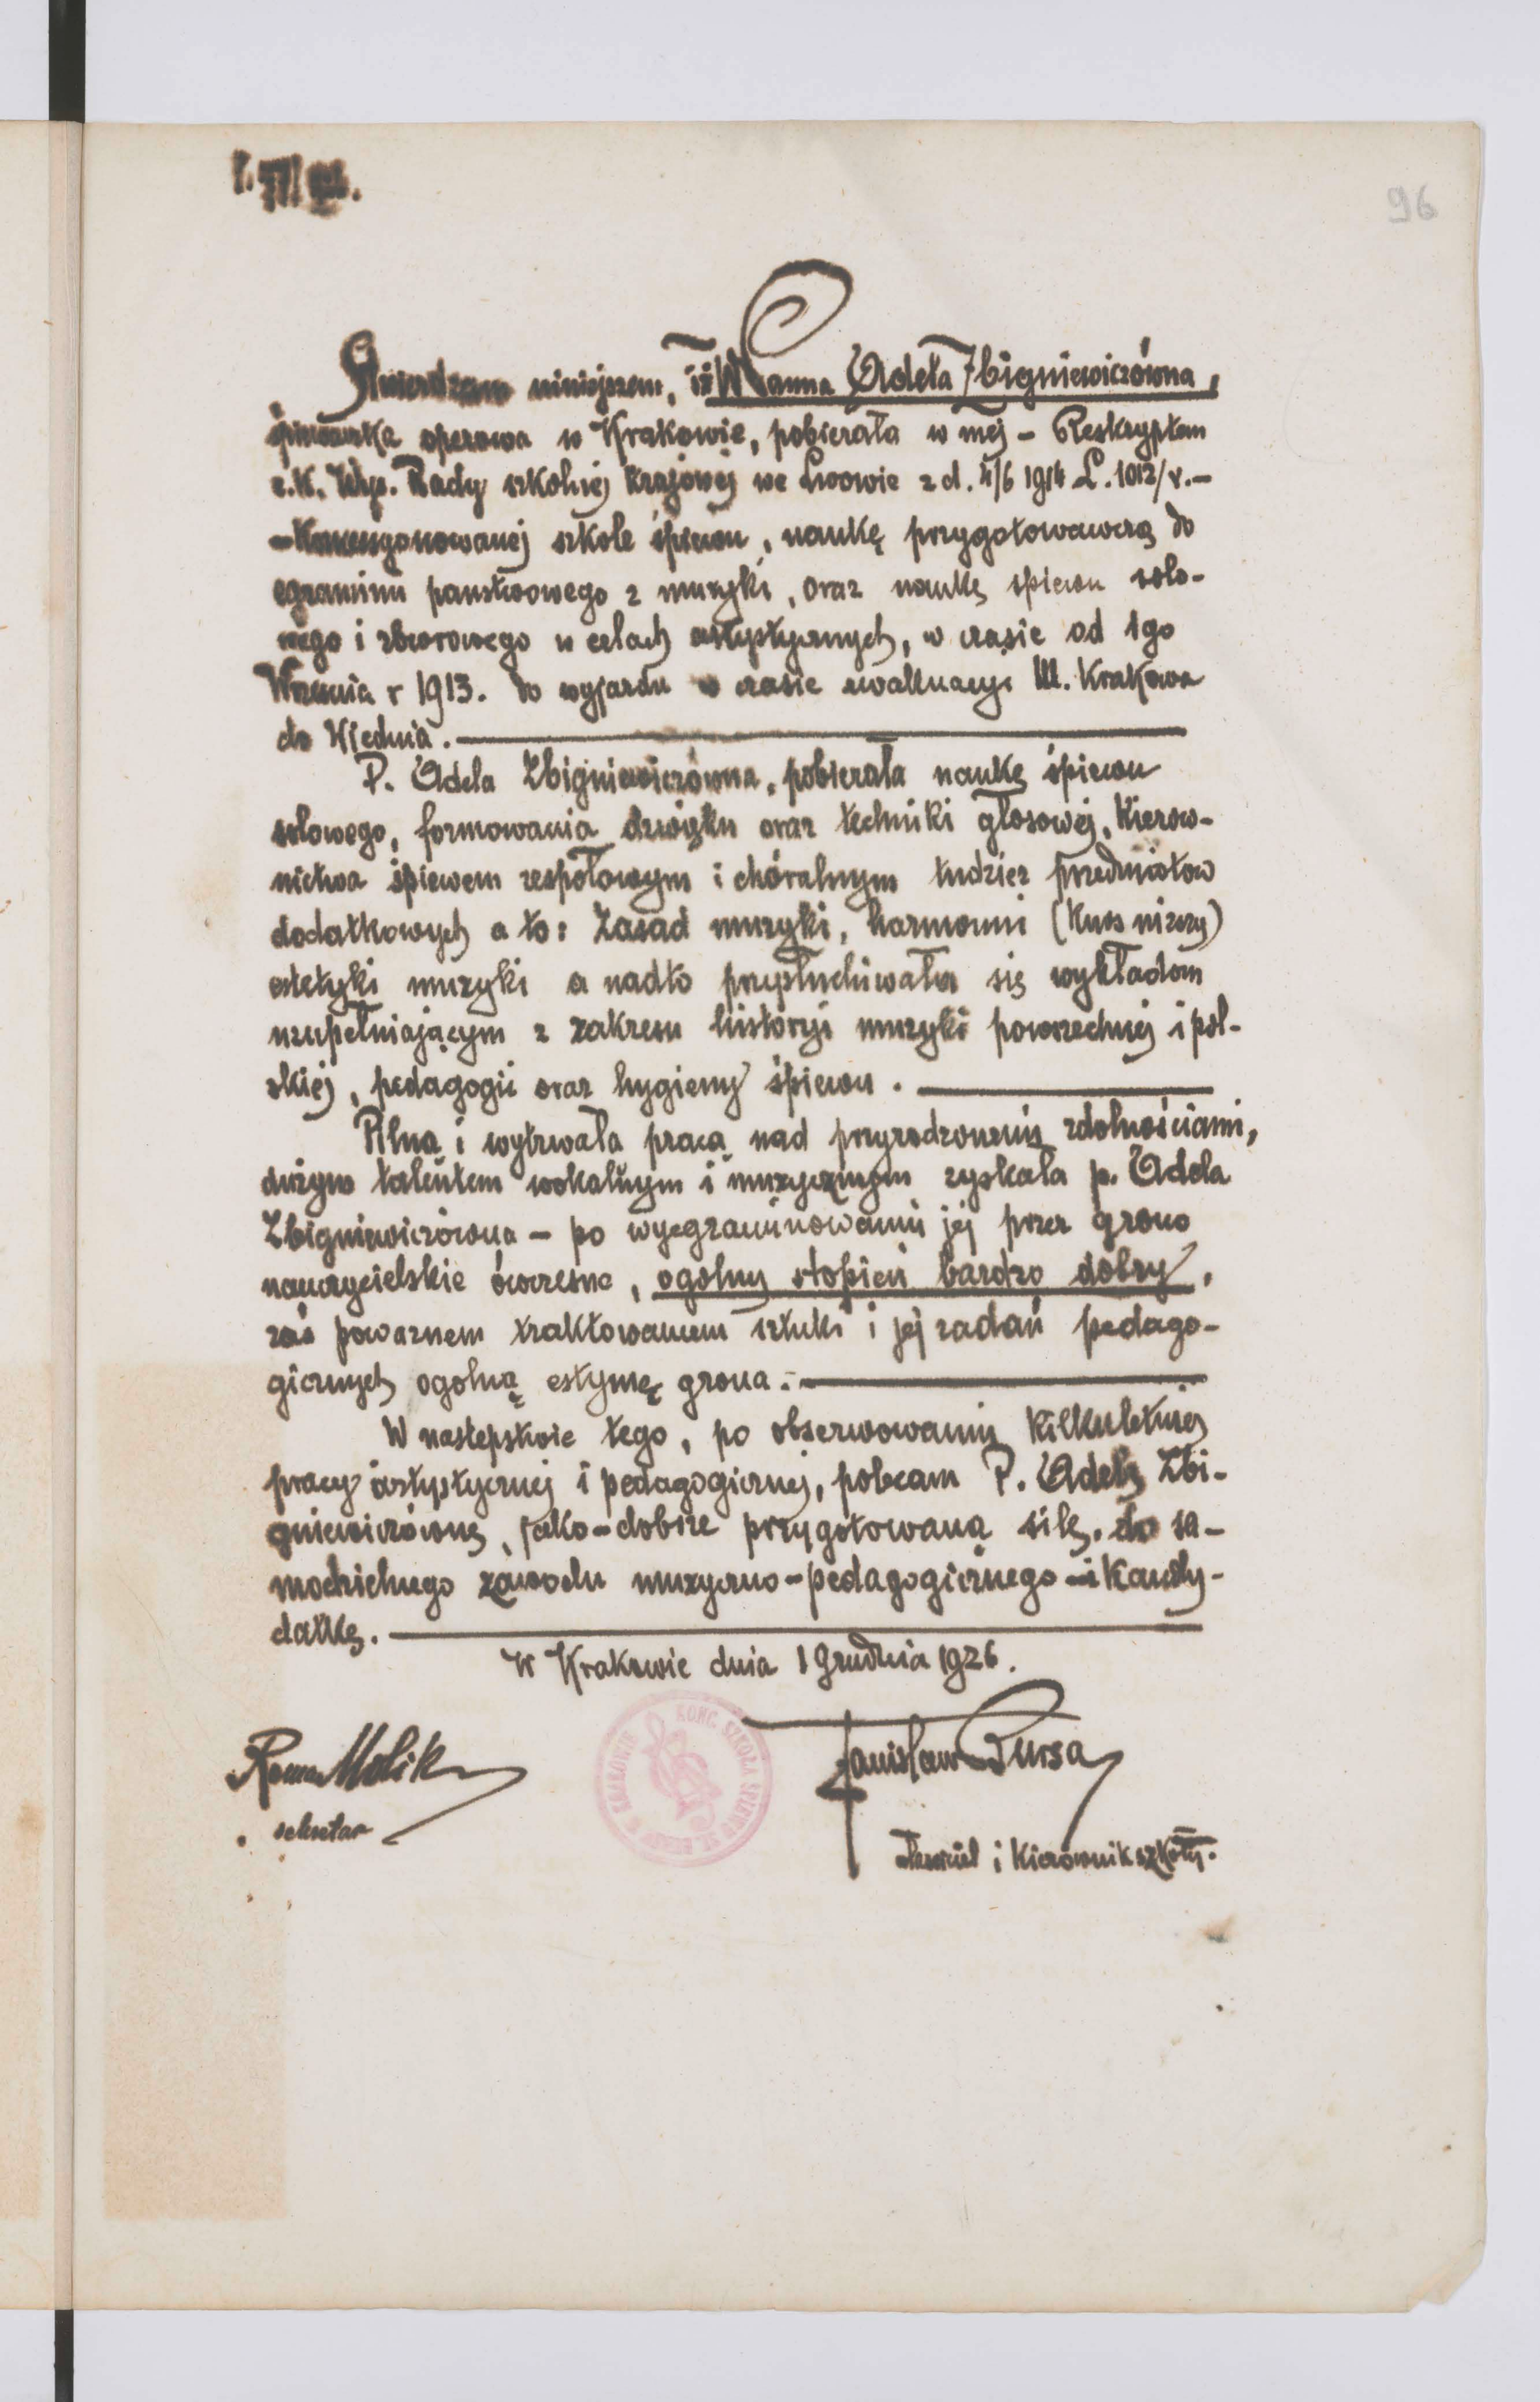 96
Stwierdzam niniejszem, iż WPanna Adela Zbigniewiczówna,
śpiewaczka operowa w Krakowie, pobierała w mej – Reskryptem
c.k. Wys. Rady szkolnej krajowej we Lwowie z d. 4/6 1914 L. 1012/v. –
– Koncesyonowanej szkole śpiewu, naukę przygotowawczą do
egzaminu państwowego z muzyki, oraz naukę śpiewu solo-
wego i zborowego w celach artystycznych, w czasie od 1go
Września r 1913. do wyjazdu w czasie ewakuacyi M. Krakowa
do Wiednia.
P. Adela Zbigniewiczówna, pobierała naukę śpiewu
solowego, formowania dźwięku oraz techniki głosowej, Kierow-
nictwa śpiewem zespołowym i chóralnym tudzież przedmiotów
dodatkowych a to: Zasad muzyki, harmonii (Kurs niższy)
estetyki muzyki a nadto przysłuchiwała się wykładom
uzupełniającym z zakresu historyi muzyki powszechnej i pol-
skiej, pedagogii oraz hygieny śpiewu.
Pilną i wytrwałą pracą nad przyrodzonemi zdolnościami,
dużym talentem wokalnym i muzycznym zyskała p. Adela
Zbigniewiczówna – po wyegzaminowaniu jej przez grono
nauczycielskie ówczesne, ogólny stopień bardzo dobry,
zaś poważnem traktowaniem sztuki i jej zadań pedago-
gicznych ogólną estymę grona.
W następstwie tego, po obserwowaniu Kilkuletniej
pracy artystycznej i pedagogicznej, polecam P. Adelę Zbi-
gniewiczównę, jako – dobrze przygotowaną siłę, do sa-
modzielnego zawodu muzyczno – pedagogicznego – i Kandy-
datkę.
W Krakowie dnia 1 Grudnia 1926.
KONC. SZKOŁA ŚPIEWU ST. BURSY W KRAKOWIE
Roman Molik
sekretarz
Stanisław Bursa
i Kierownik szkoły.